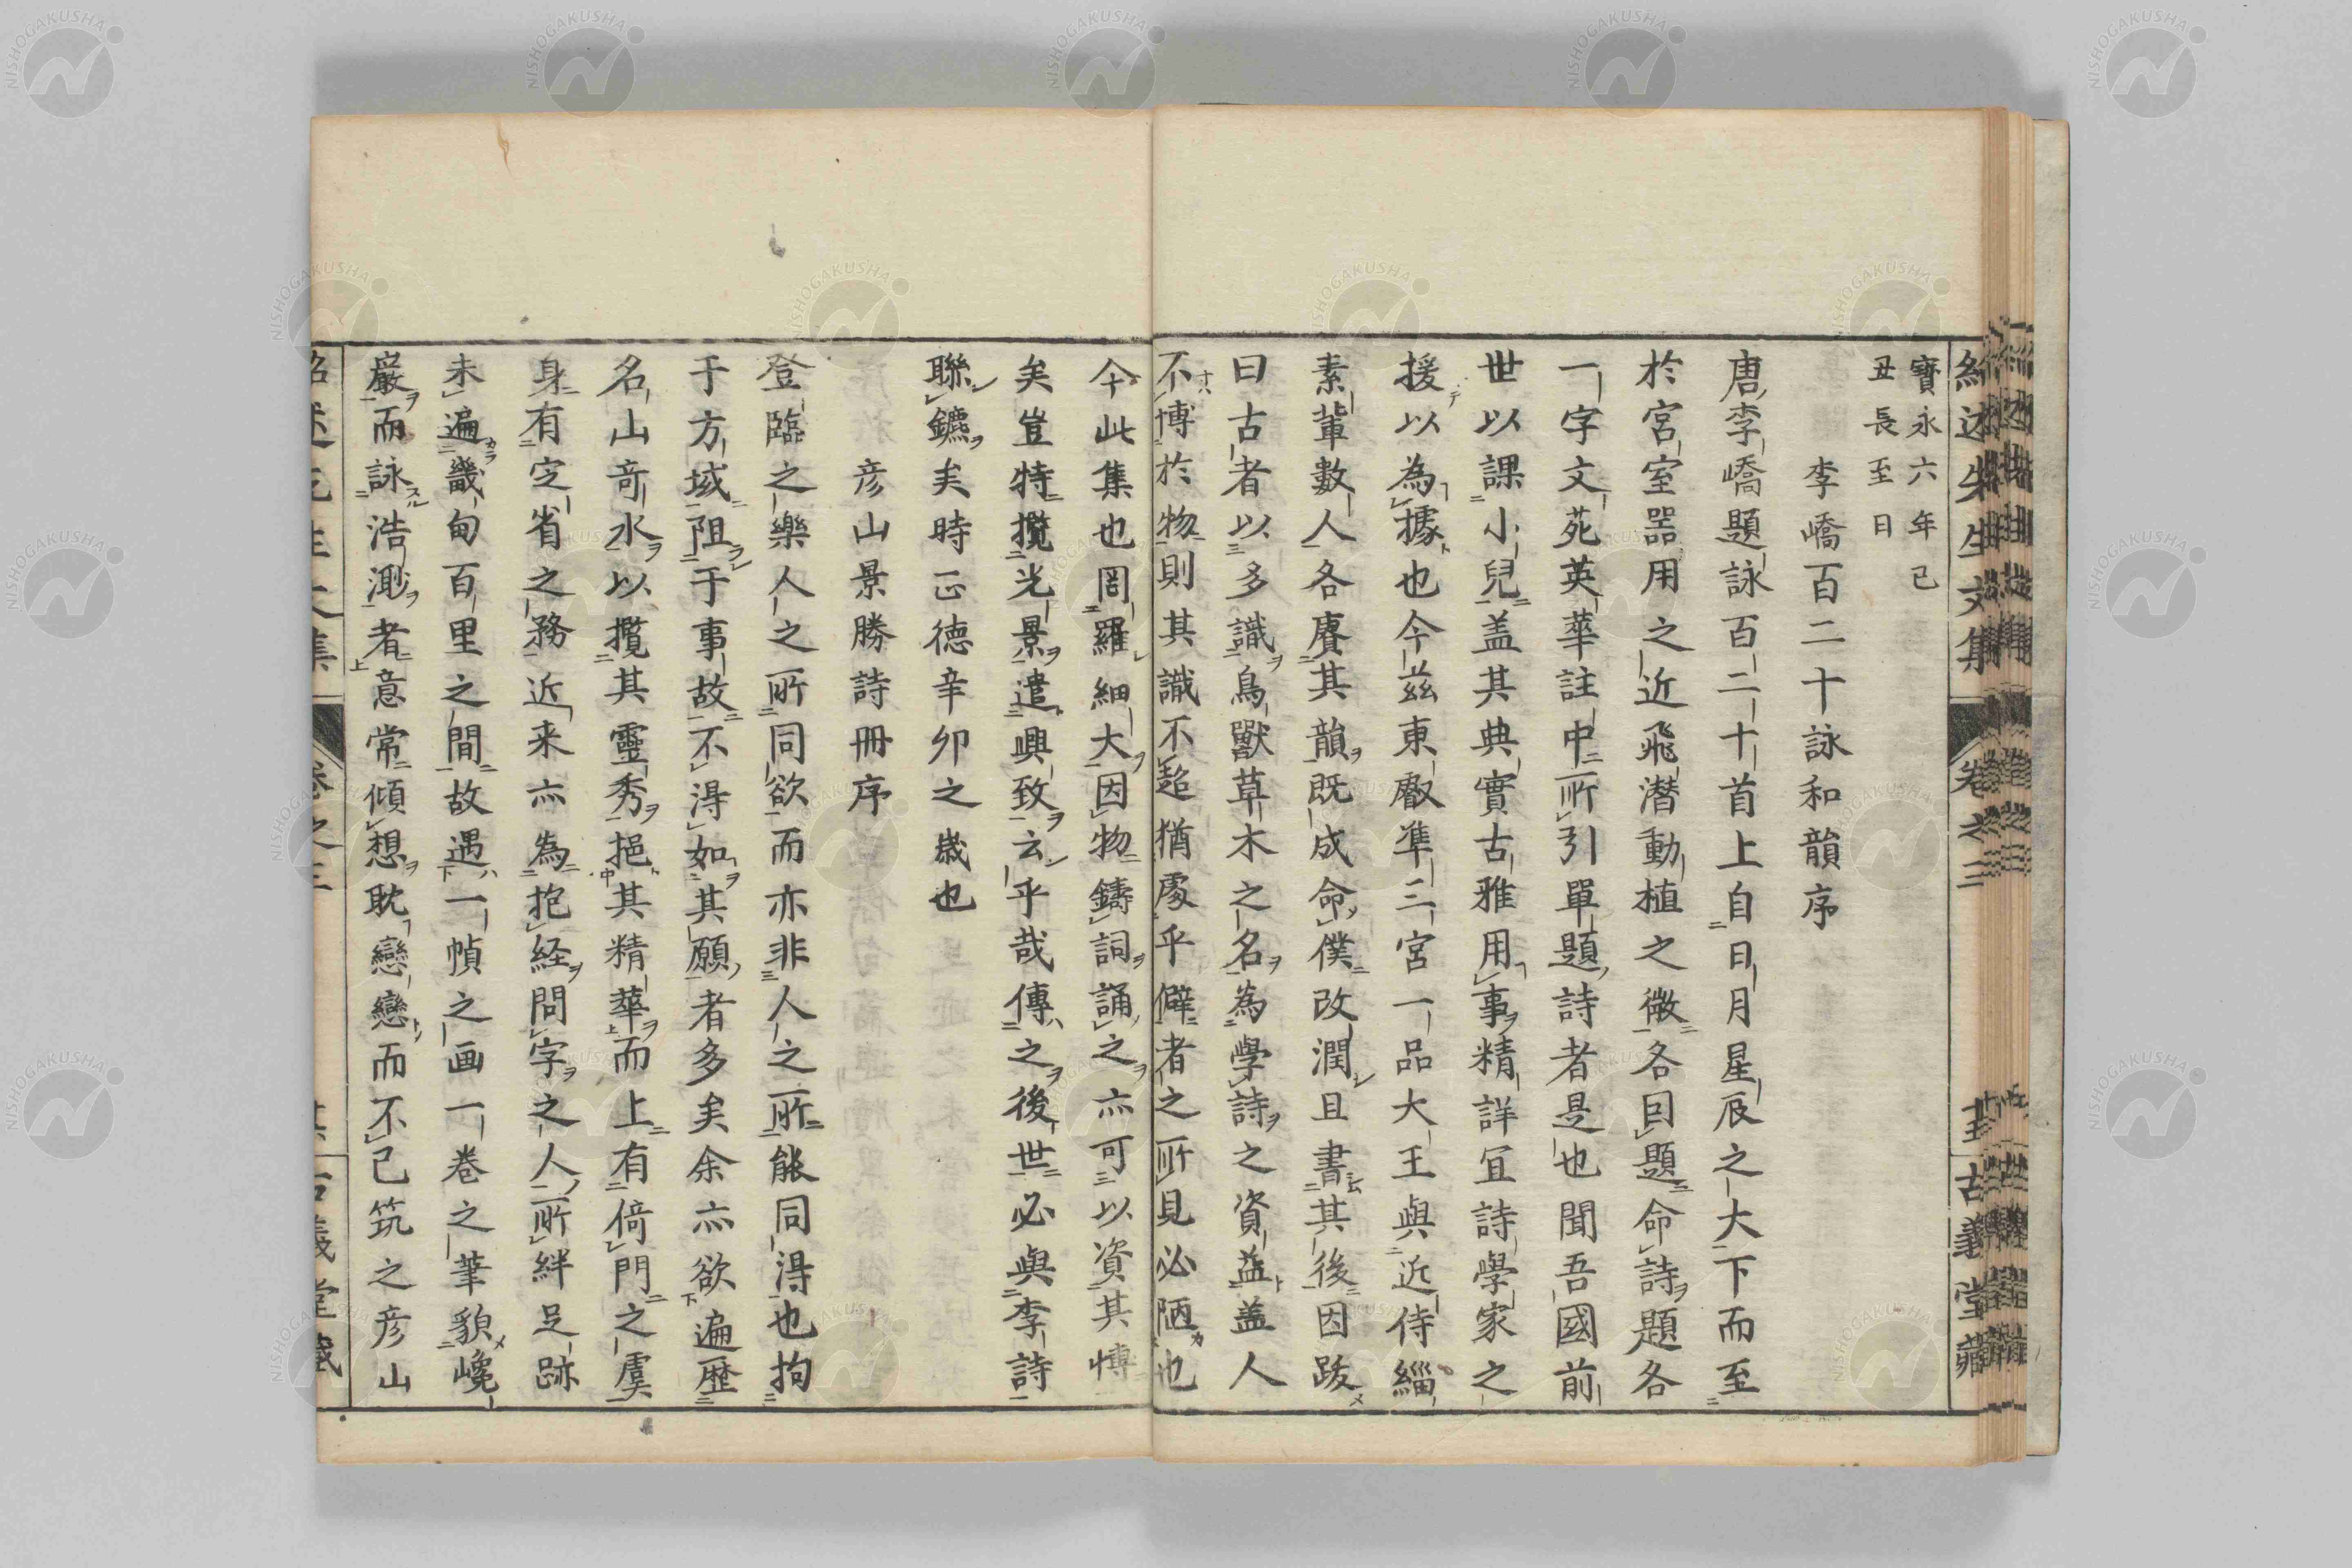 寶永六年己
丑長至日
李嶠百二十詠和韻序
唐李嶠題詠百二十首上自日月星辰之大下而至
於宮室噐用之近飛潜動植之微各因題命詩題各
一字文苑英華註中所引單題詩者是也聞吾國前
世以課小兒盖其典實古雅用事精詳冝詩學家之
援以為據也今茲東叡凖三宮一品大王與近侍緇
素軰數人各賡其韻既成命僕改潤且書其後因跋
曰古者以多識鳥獸草木之名為學詩之資益盖人
不博於物則其識不超猶處乎僻者之所見必陋也
今此集也罔羅細大因物鑄詞誦之亦可以資其博
矣豈特攬光景遣興致云乎哉傳之後世必與李詩
聯鑣矣時正徳辛卯之歲也
彦山景勝詩冊序
登臨之樂人之所同欲而亦非人之所能同淂也拘
于方域阻于事故不淂如其願者多矣余亦欲遍歴
名山竒水以攬其靈秀挹其精華而上有倚門之虞
身有㝎省之務近来亦為抱経問字之人所絆足跡
未遍畿甸百里之間故遇一幀之画一卷之筆貌巉
巖而詠浩渺者意常傾想耽戀戀而不已筑之彦山
紹述先生文集 卷之三 古義堂藏
NISHOGAKUSHA